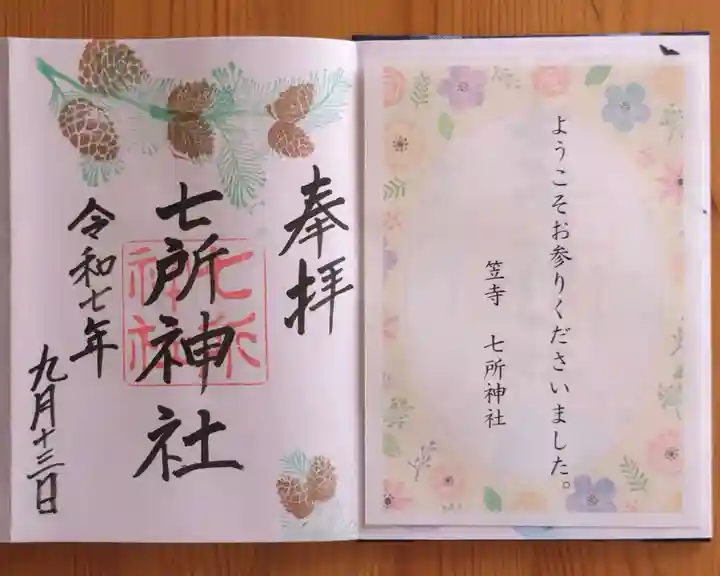 ようこそお参りくださいました。
笠寺 七所神社
奉拝
七所神社
七所
神社
令和七年
九月十三日